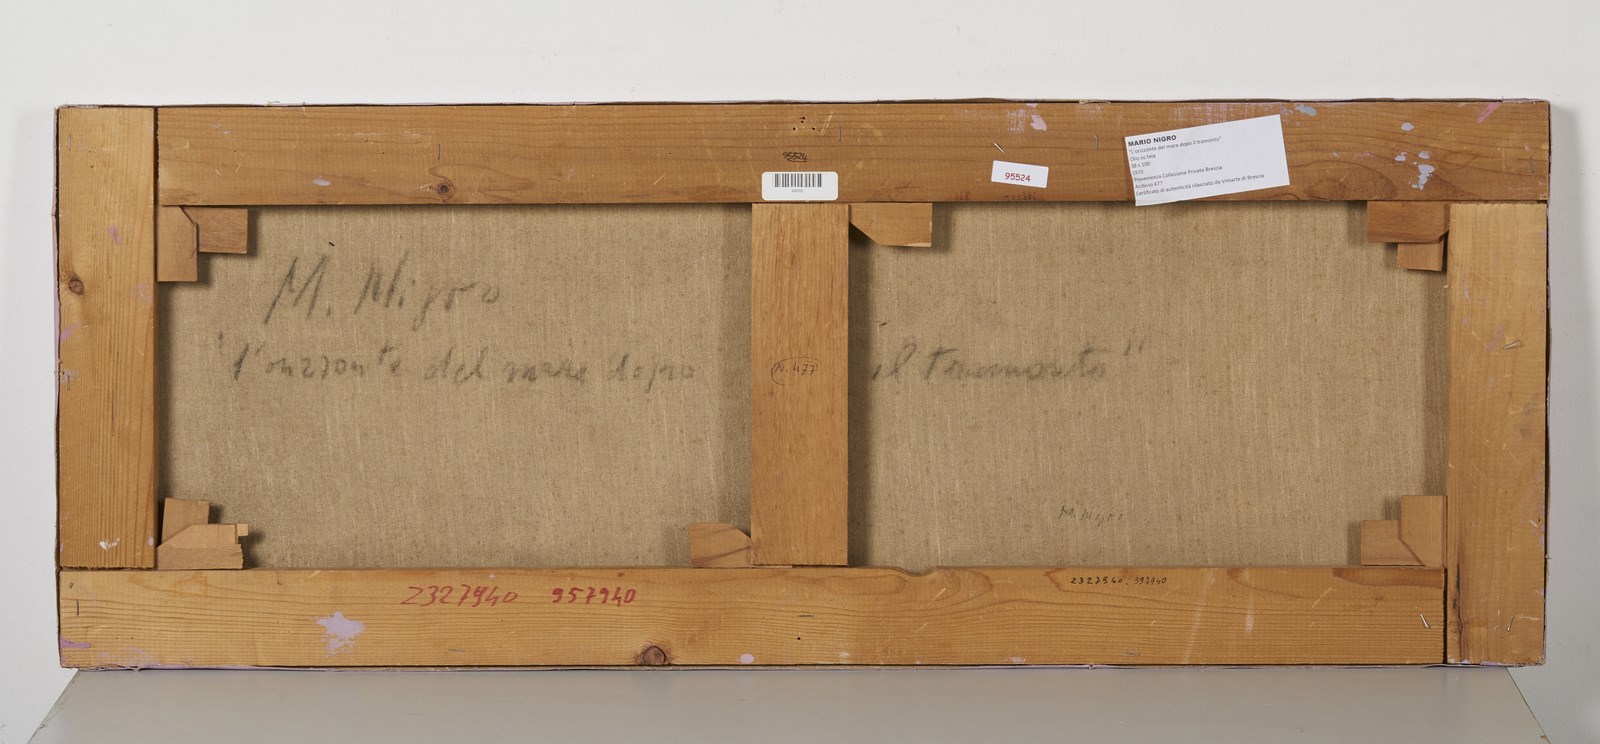 95524
95524
MARIO NIGRO
"L'orizzonte del mare dopo il tramonto"
Olio su tela
38 x 100
1970
Provenienza Collezione Privata Brescia
Archivio 477
Certificato di autenticità rilasciato da Vimarte di Brescia
M. Nigro
"l'orizzonte del mare dopo il tramonto"
N. 477
M. Nigro
2327940 957940
2327940.